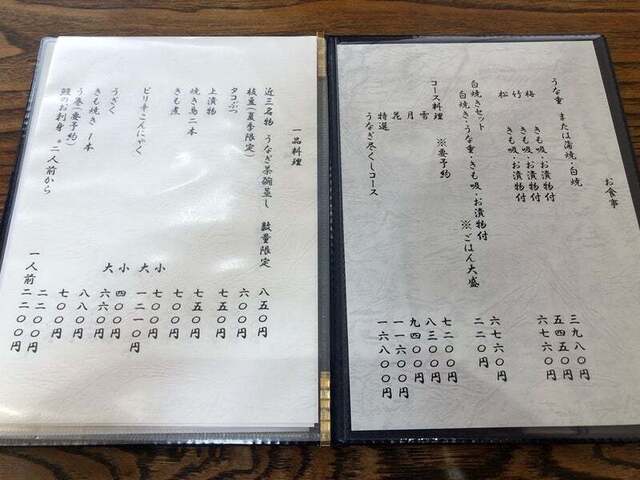 お食事
うな重 または蒲焼・白焼
梅 きも吸・お漬物付 三九八〇円
竹 きも吸・お漬物付 五四五〇円
松 きも吸・お漬物付 六七六〇円
白焼きセット
白焼き・うな重・きも吸・お漬物付 六七六〇円
※ごはん大盛 二二〇円
コース料理 ※要予約
雪 七二〇〇円
月 八三〇〇円
花 九四〇〇円
特選 一一六〇〇円
うなぎ尽くしコース 一六八〇〇円
一品料理
近三名物 うなぎ茶碗蒸し 数量限定 八五〇円
枝豆(夏季限定) 六〇〇円
タコぶつ 七五〇円
上漬物 七五〇円
焼き鳥二本 七〇〇円
きも煮 七〇〇円
ピリ辛こんにゃく 小 七〇〇円
大 一二一〇円
うざく 小 四〇〇円
大 六六〇円
きも焼き 一本 八八〇円
う巻(要予約) 七〇〇円
鰻のお刺身 *二人前から 二二〇〇円
一人前 二二〇〇円